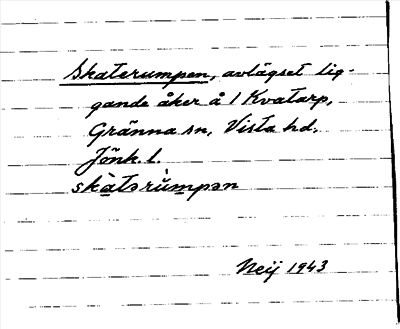 Skaterumpen, avlägset lig-
gande åker å 1 Kvatarp,
Gränna sn, Vista hd.
Jönk. l.
skàtərùmpən
Neij 1943